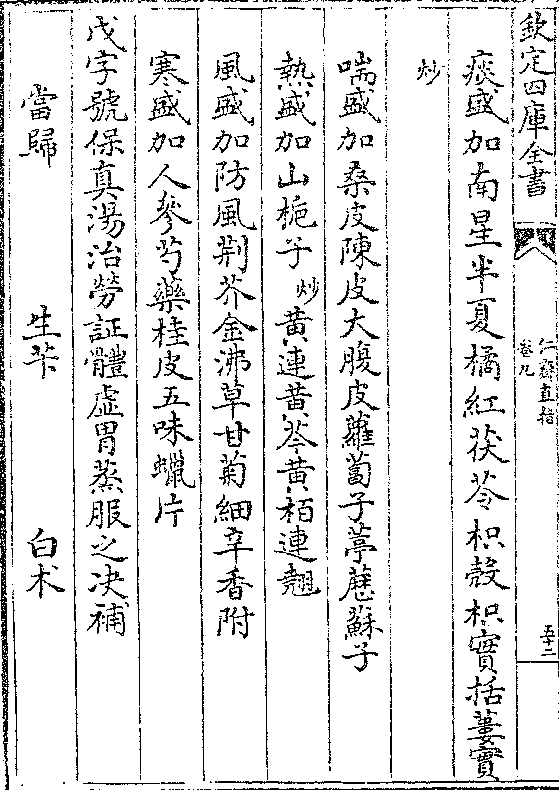 欽定四庫全書
仁齋直指
卷九
五十二
痰盛加南星半夏橘紅茯苓枳殼枳實括蔞實
炒
喘盛加桑皮陳皮大腹皮蘿蔔子葶藶蘇子
熱盛加山梔子炒黃連黃芩黃栢連翹
風盛加防風荆芥金沸草甘菊細辛香附
寒盛加人參芍藥桂皮五味蠟片
戊字號保真湯治勞証體虛胃蒸服之决補
當歸 生芐 白术